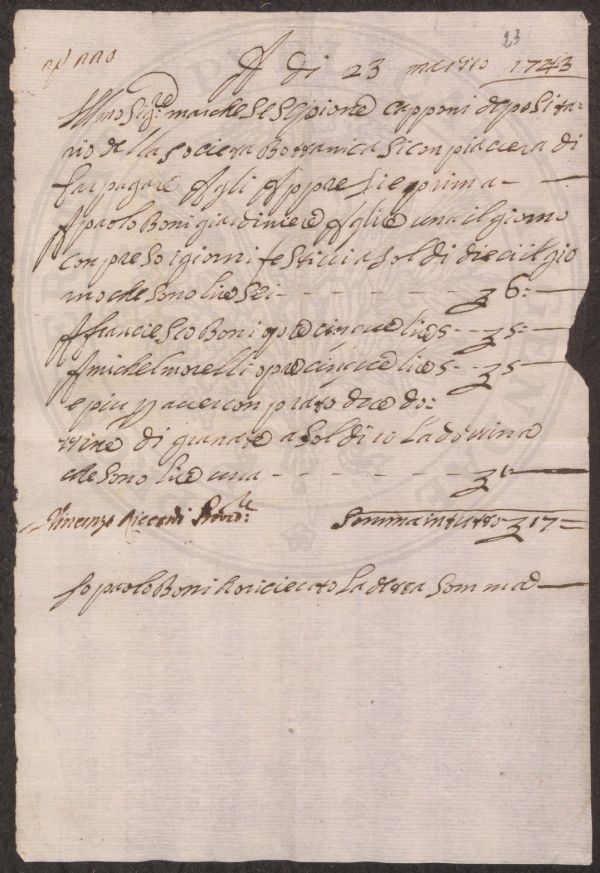 23
A di 23 marzo 1743
Illmo Sigre marchese Scipione Capponi deposita=
rio della Società Bottanica si conpiacera di
far pagare Agli Appresie e prima
A paolo Boni giardiniere Aglie una il giorno
conpreso i giorni festivi a soldi dieci il gio
rno che sono lire sei - - - - - - - 6:
A franciesco Boni opre cinque lire 5 - - 5:
A michel morelli opre cinque lire 5 - - 5
e piu p aver conprato due do:
zzine di granate a soldi 10 La dozzina
che sono lire una - - - - - - - 1
Vincenzo Riccardi Prove:
Somma in tutto 17=
Io paolo Boni ho riceuto La detta Somma